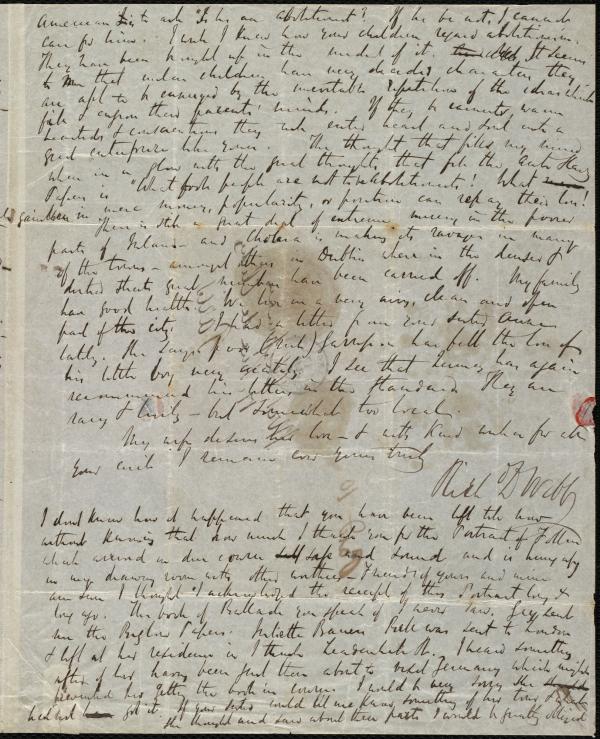 American is to ask "Is he an abolitionist? If he be not, I cannot
care for him. I wish I knew how your children regard abolitionism.
They have been brought up in the midst of it. It seems
to me that unless children have very decided characters they
are apt to be by the inevitable repetition of the ideas which
fill & engross their parents' minds. If they be earnest, warm
hearted & conscientious they will enter heart and soul into a
great enterprize like yours. The thought that fills my mind
when in a glow with the great thoughts that fill the Anti Slavery
Papers is "What fools people are not to be abolitionists! What
gain in mere money, popularity, or position can repay their loss!
There is still a great deal of extreme misery in the poorer
parts of Ireland and Cholera is making its ravages in many
of the towns – amongst others in Dublin where in the denser
districts great numbers have been carried off. My family
have good health. We live in a very airy, clean and open
part of the city. I had a letter from your sister Anne
lately. She says poor (rich) Garrison has felt the loss of
his little boy very acutely. I see that Quincy has again
recommenced his letters in the Standard. They are
racy & lively – but somewhat too local.
My wife desires her love – & with kind wishes for all
your circle I remain ever yours truly
Richd D Webb
I dont know how it happened that you have been left till now
without knowing that how much I thank you for the Portrait of Follen
which arrived in due course safe and sound and is hung up
in my drawing room with other worthies – friends of yours and mine
am sure I thought I acknowledged the receipt of this Portrait long &
long ago. The book of Ballads you speak of I never saw. Gay sent
me the Biglow Papers. Juliette Bauer's Book was sent to London
& left at her residence in I think Leadenhall St. I heard something
after of her having been just then about to visit Germany which might
prevented her getting the book in course. I would be very sorry she
had not got it. If your sister could let me know something of her tour & what
she thought and saw about these parts I would be greatly obliged